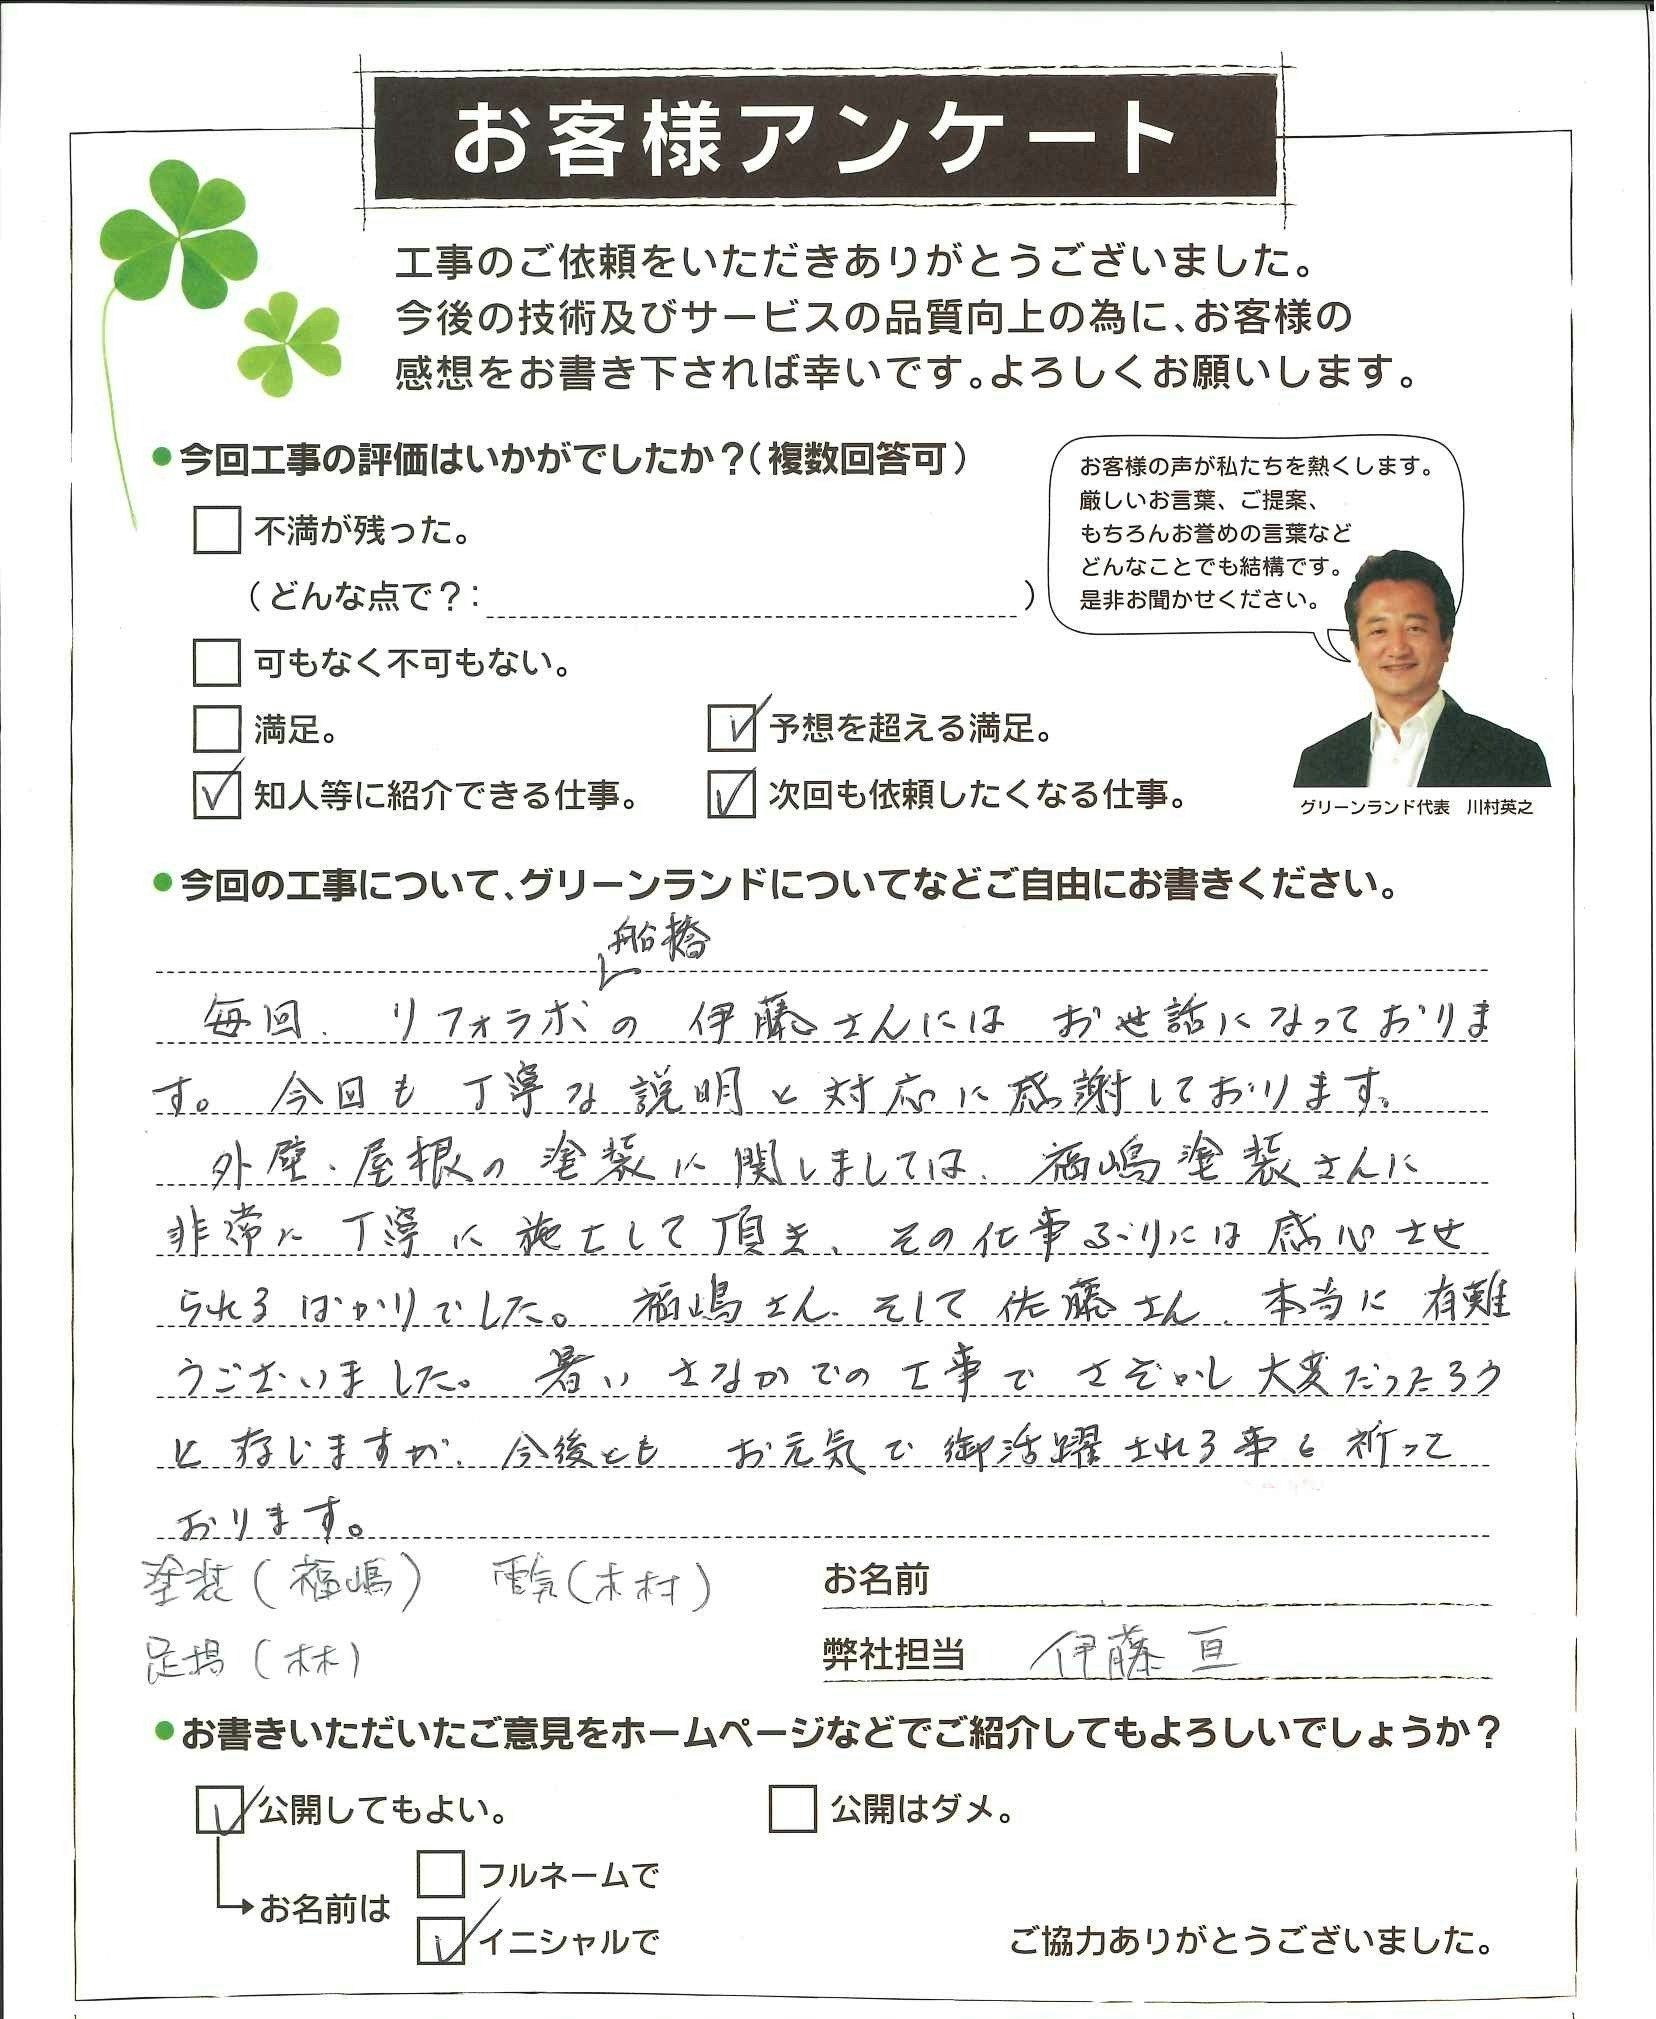 お客様アンケート
工事のご依頼をいただきありがとうございました。
今後の技術及びサービスの品質向上の為に、お客様の
感想をお書き下されば幸いです。よろしくお願いします。
●今回工事の評価はいかがでしたか？（複数回答可）
不満が残った。
（どんな点で？：　）
可もなく不可もない。
満足。
予想を超える満足。
知人等に紹介できる仕事。
次回も依頼したくなる仕事。
お客様の声が私たちを熱くします。
厳しいお言葉、ご提案、
もちろんお誉めの言葉など
どんなことでも結構です。
是非お聞かせください。
グリーンランド代表　川村英之
●今回の工事について、グリーンランドについてなどご自由にお書きください。
船橋
毎回、リフォラボの伊藤さんにはお世話になっておりま
す。今回も丁寧な説明と対応に感謝しております。
外壁、屋根の塗装に関しましては、福嶋塗装さんに
非常に丁寧に施工して頂き、その仕事ぶりには感心させ
られるばかりでした。福嶋さん、そして佐藤さん、本当に有難
うございました。暑いさなかでの工事でさぞかし大変だったろう
と存じますが、今後ともお元気で御活躍される事を祈って
おります。
塗装（福嶋）　電気（木村）
足場（林）
お名前
弊社担当　伊藤亘
●お書きいただいたご意見をホームページなどでご紹介してもよろしいでしょうか？
公開してもよい。
公開はダメ。
お名前は
フルネームで
イニシャルで
ご協力ありがとうございました。